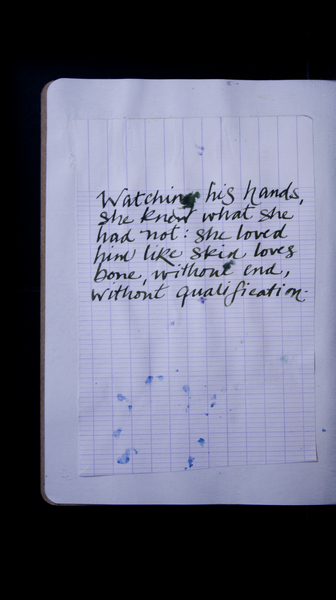 Watching his hands,
she knew what she
had not: she loved
him like skin loves
bone, without end,
without qualification.